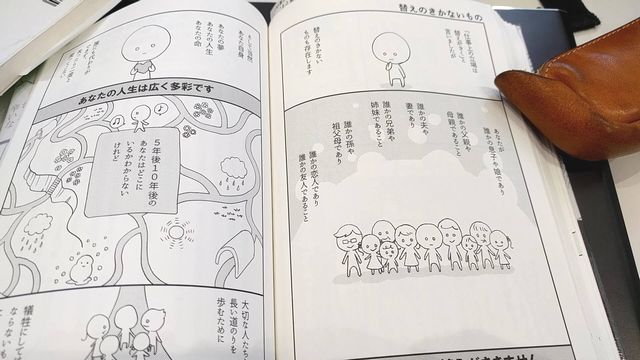 替えのきかないもの
「仕事上の立場は
替えがきく」と
言いましたが
替えのきかない
ものも存在します
あなたが
誰かの息子や娘であり
誰かの父親や
母親であること
誰かの夫や
妻であり
誰かの兄弟や
姉妹であること
誰かの孫や
祖父母であり
誰かの恋人であり
誰かの友人であること
そして当然
あなた自身
あなたの夢
あなたの人生
あなたの命
あなたの人生は広く多彩です
5年後10年後の
あなたはどこに
いるかわからない
けれど
大切な人たち
長い道のりを
歩むために
犠牲にしては
ならないも